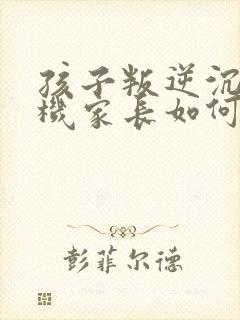 孩子叛逆沉
机家长如何
彭菲尔德